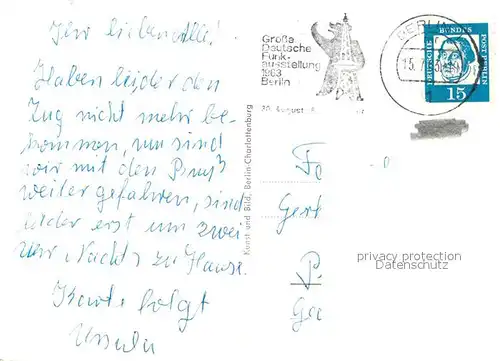 Ihr Lieben Alle!
Haben leider den
Zug nicht mehr be-
kommen, nun sind
wir mit den Bus
weiter gefahren, sind
leider erst um zwei
Uhr Nachts zu Hause.
Karte folgt
Ursula
Kunst und Bild, Berlin-Charlottenburg
Große
Deutsche
Funk-
ausstellung
1963
Berlin
30. August
BERLIN
DEUTSCHE BUNDESPOST BERLIN
15
privacy protection
Datenschutz